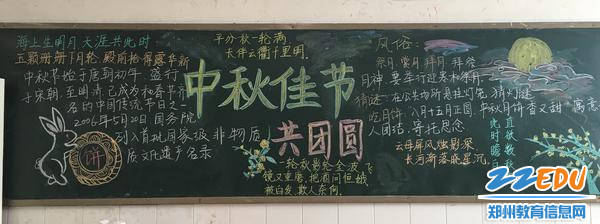 海上生明月 天涯共此时
五颗珊珊下月轮，殿前拾得露华新
中秋节始于唐朝初年，盛行
于宋朝，至明清，已成为和春节齐
名的中国传统节日之一
2006年5月20日，国务院
列入首批国家级非物质
质文化遗产名录
饼
平分秋一轮满
长伴云衢千里明
中秋佳节
共团圆
一轮秋影转金波，飞
镜又重磨，把酒问姮娥
被白发，欺人奈何
风俗：
祭月、赏月、拜月、拜祭
月神：要举行迎寒和祭月
猜谜：在公共场所悬挂灯笼，猜灯谜
吃月饼：八月十五月正圆，中秋月饼香又甜，寓意
人团结，寄托思念
云母屏风烛影深
长河渐落晓星沉
此时瞻白
直供数秋
ZZEDU
郑州教育信息网